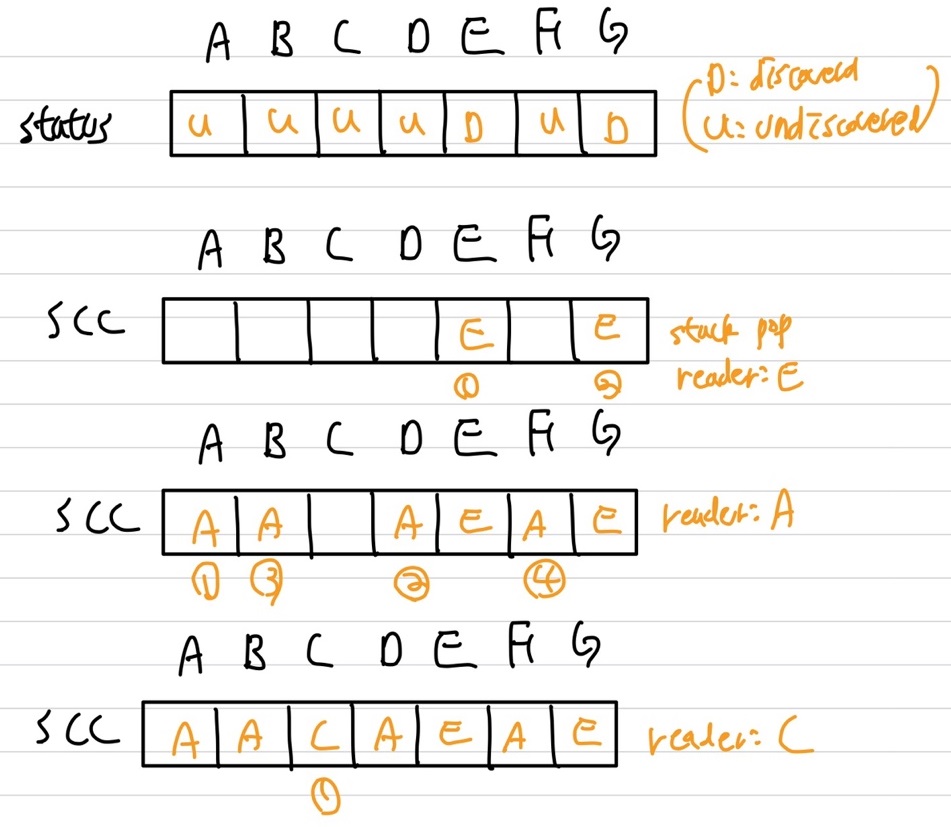 A B C D E F G
status U U U U D U D (D: discoverd
U: undiscovered)
A B C D E F G
SCC E E stack pop
① ② reader: E
A B C D E F G
SCC A A A E A E reader: A
① ③ ② ④
A B C D E F G
SCC A A C A E A E reader: C
①